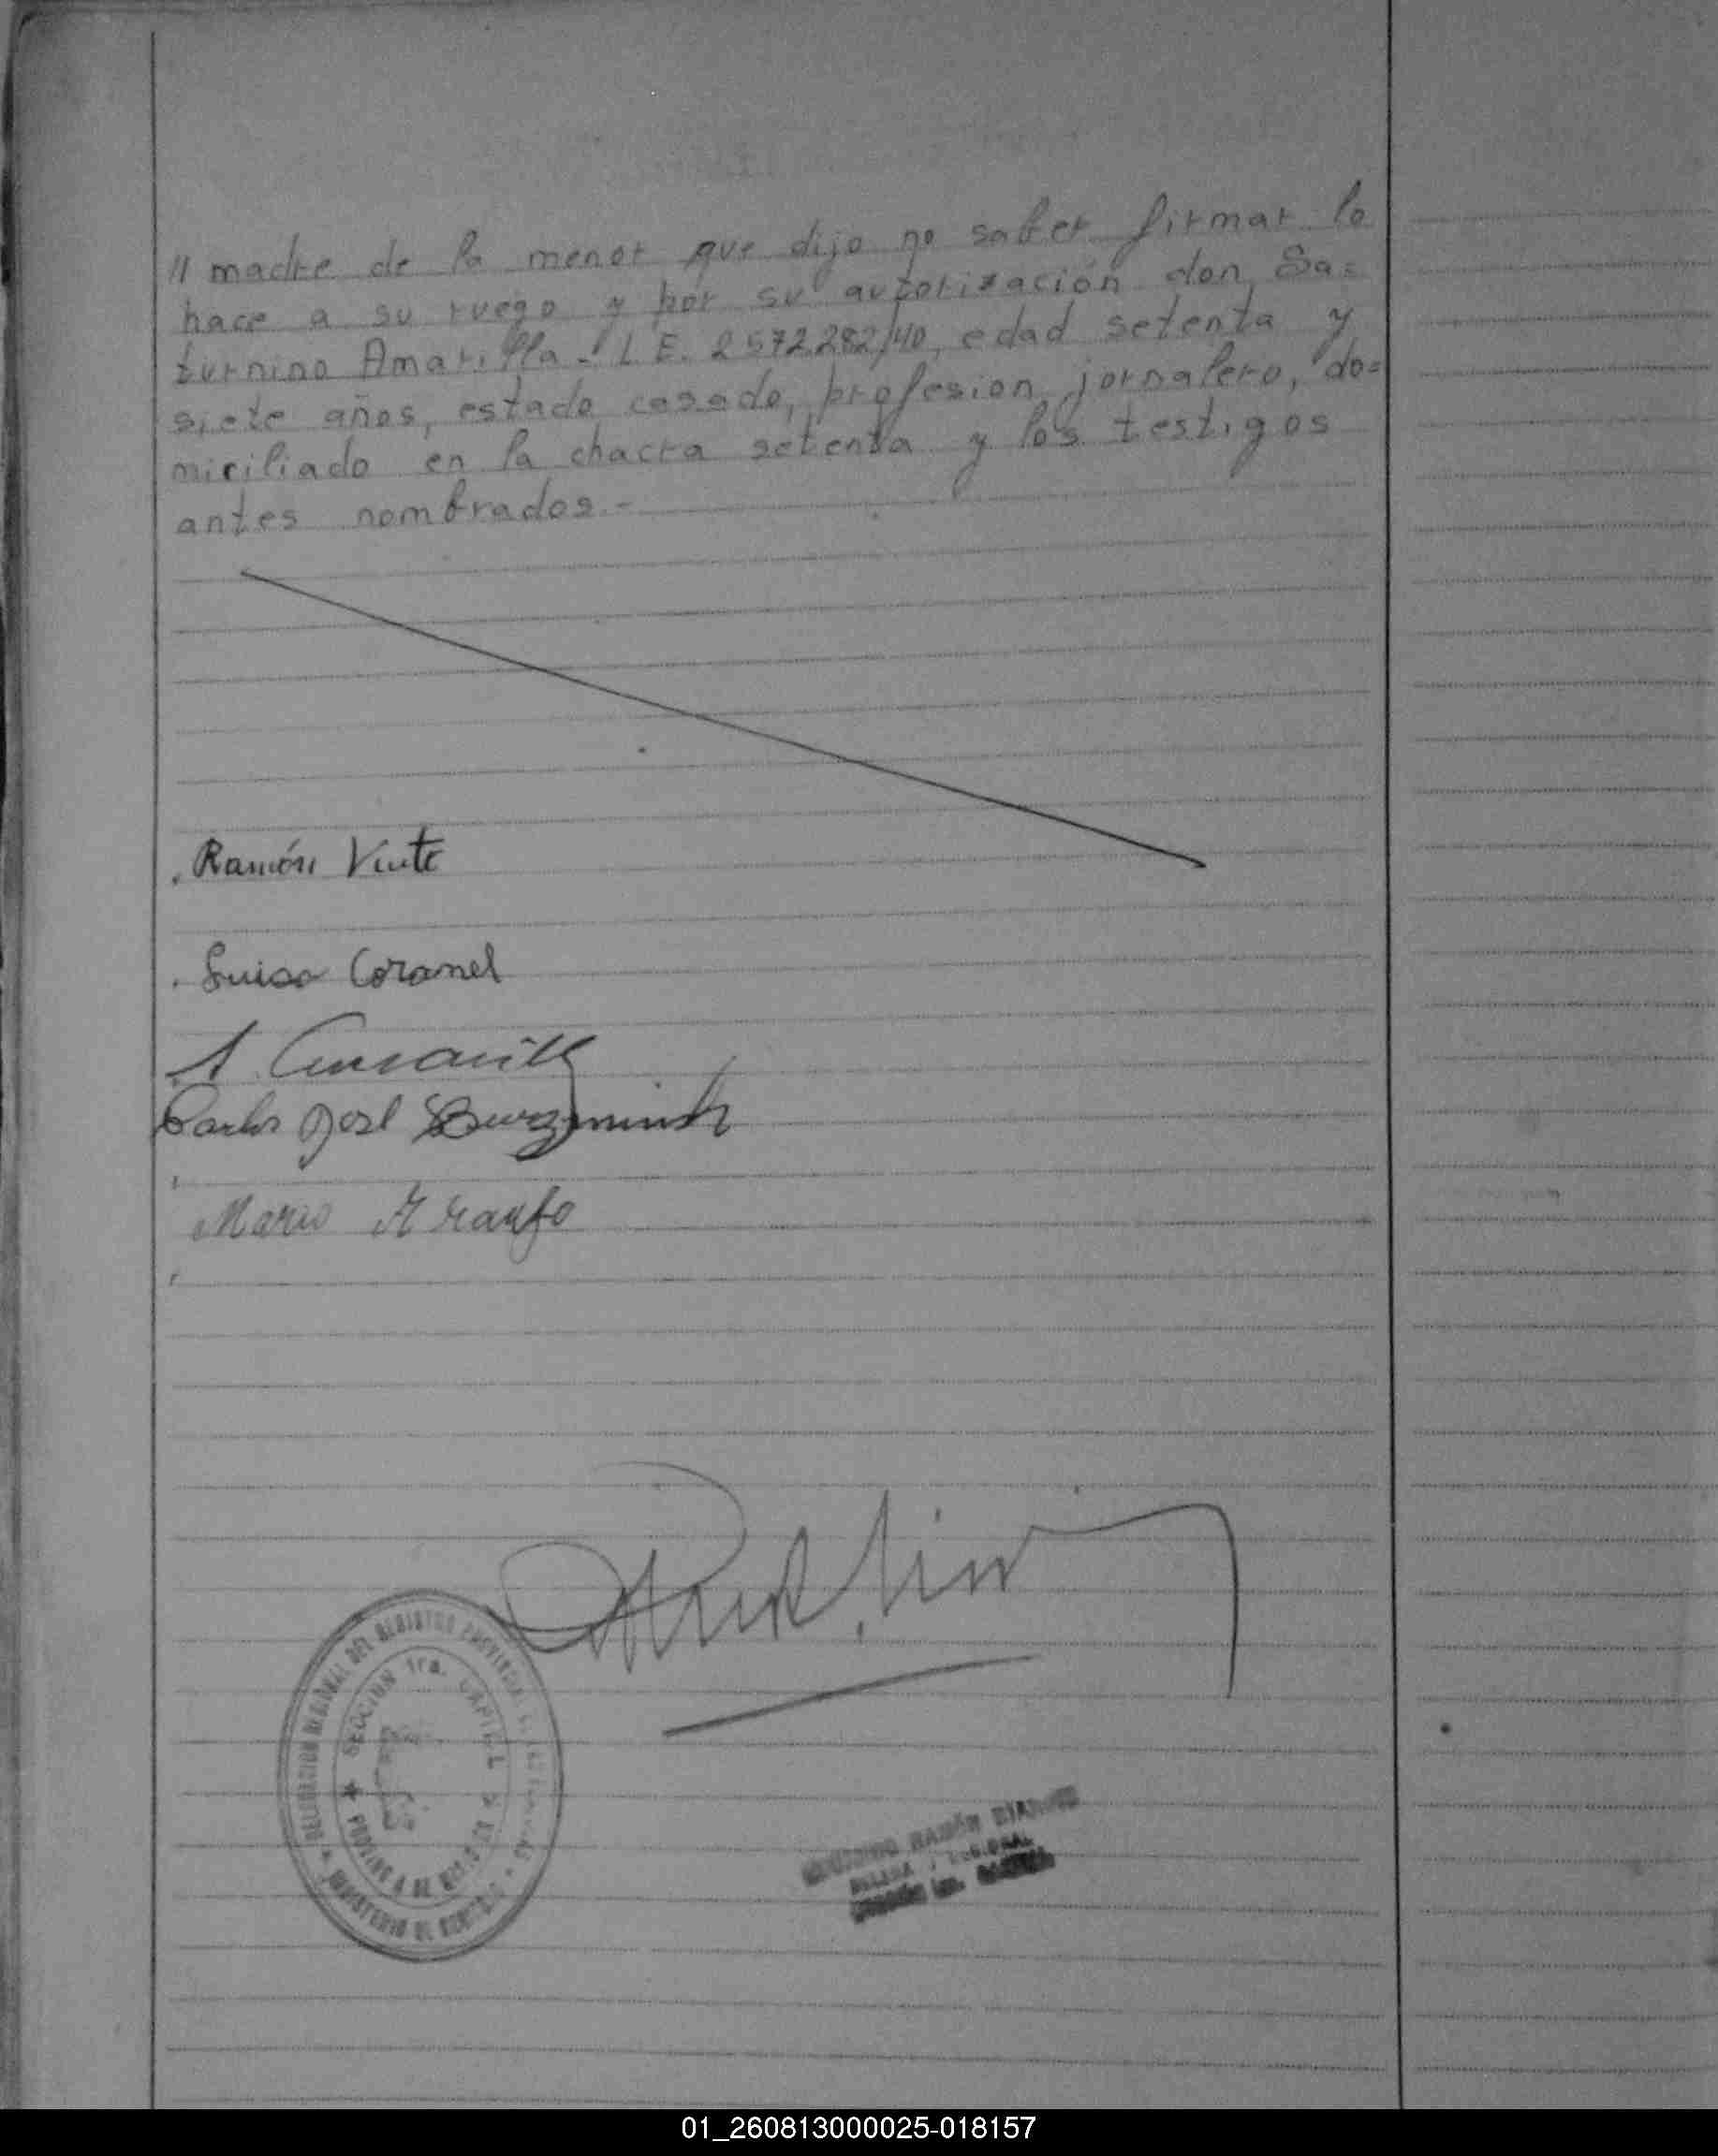 // madre de la menor que dijo no saber firmar lo
hace a su ruego y por su autorización don Sa=
turnino Amarilla - L.E. 2572282/40, edad setenta y
siete años, estado casado, profesion jornalero, do=
miciliado en la chacra setenta y los testigos
antes nombrados.-
Ramón
Luisa Coronel
Carlos José
Mario Araujo
DELEGACION REGIONAL DEL REGISTRO PROVINCIAL DE LAS PERSONAS
SECCION 1ra. CAPITAL
POSADAS
MINISTERIO DE GOBIERNO
RAMÓN
01_260813000025-018157